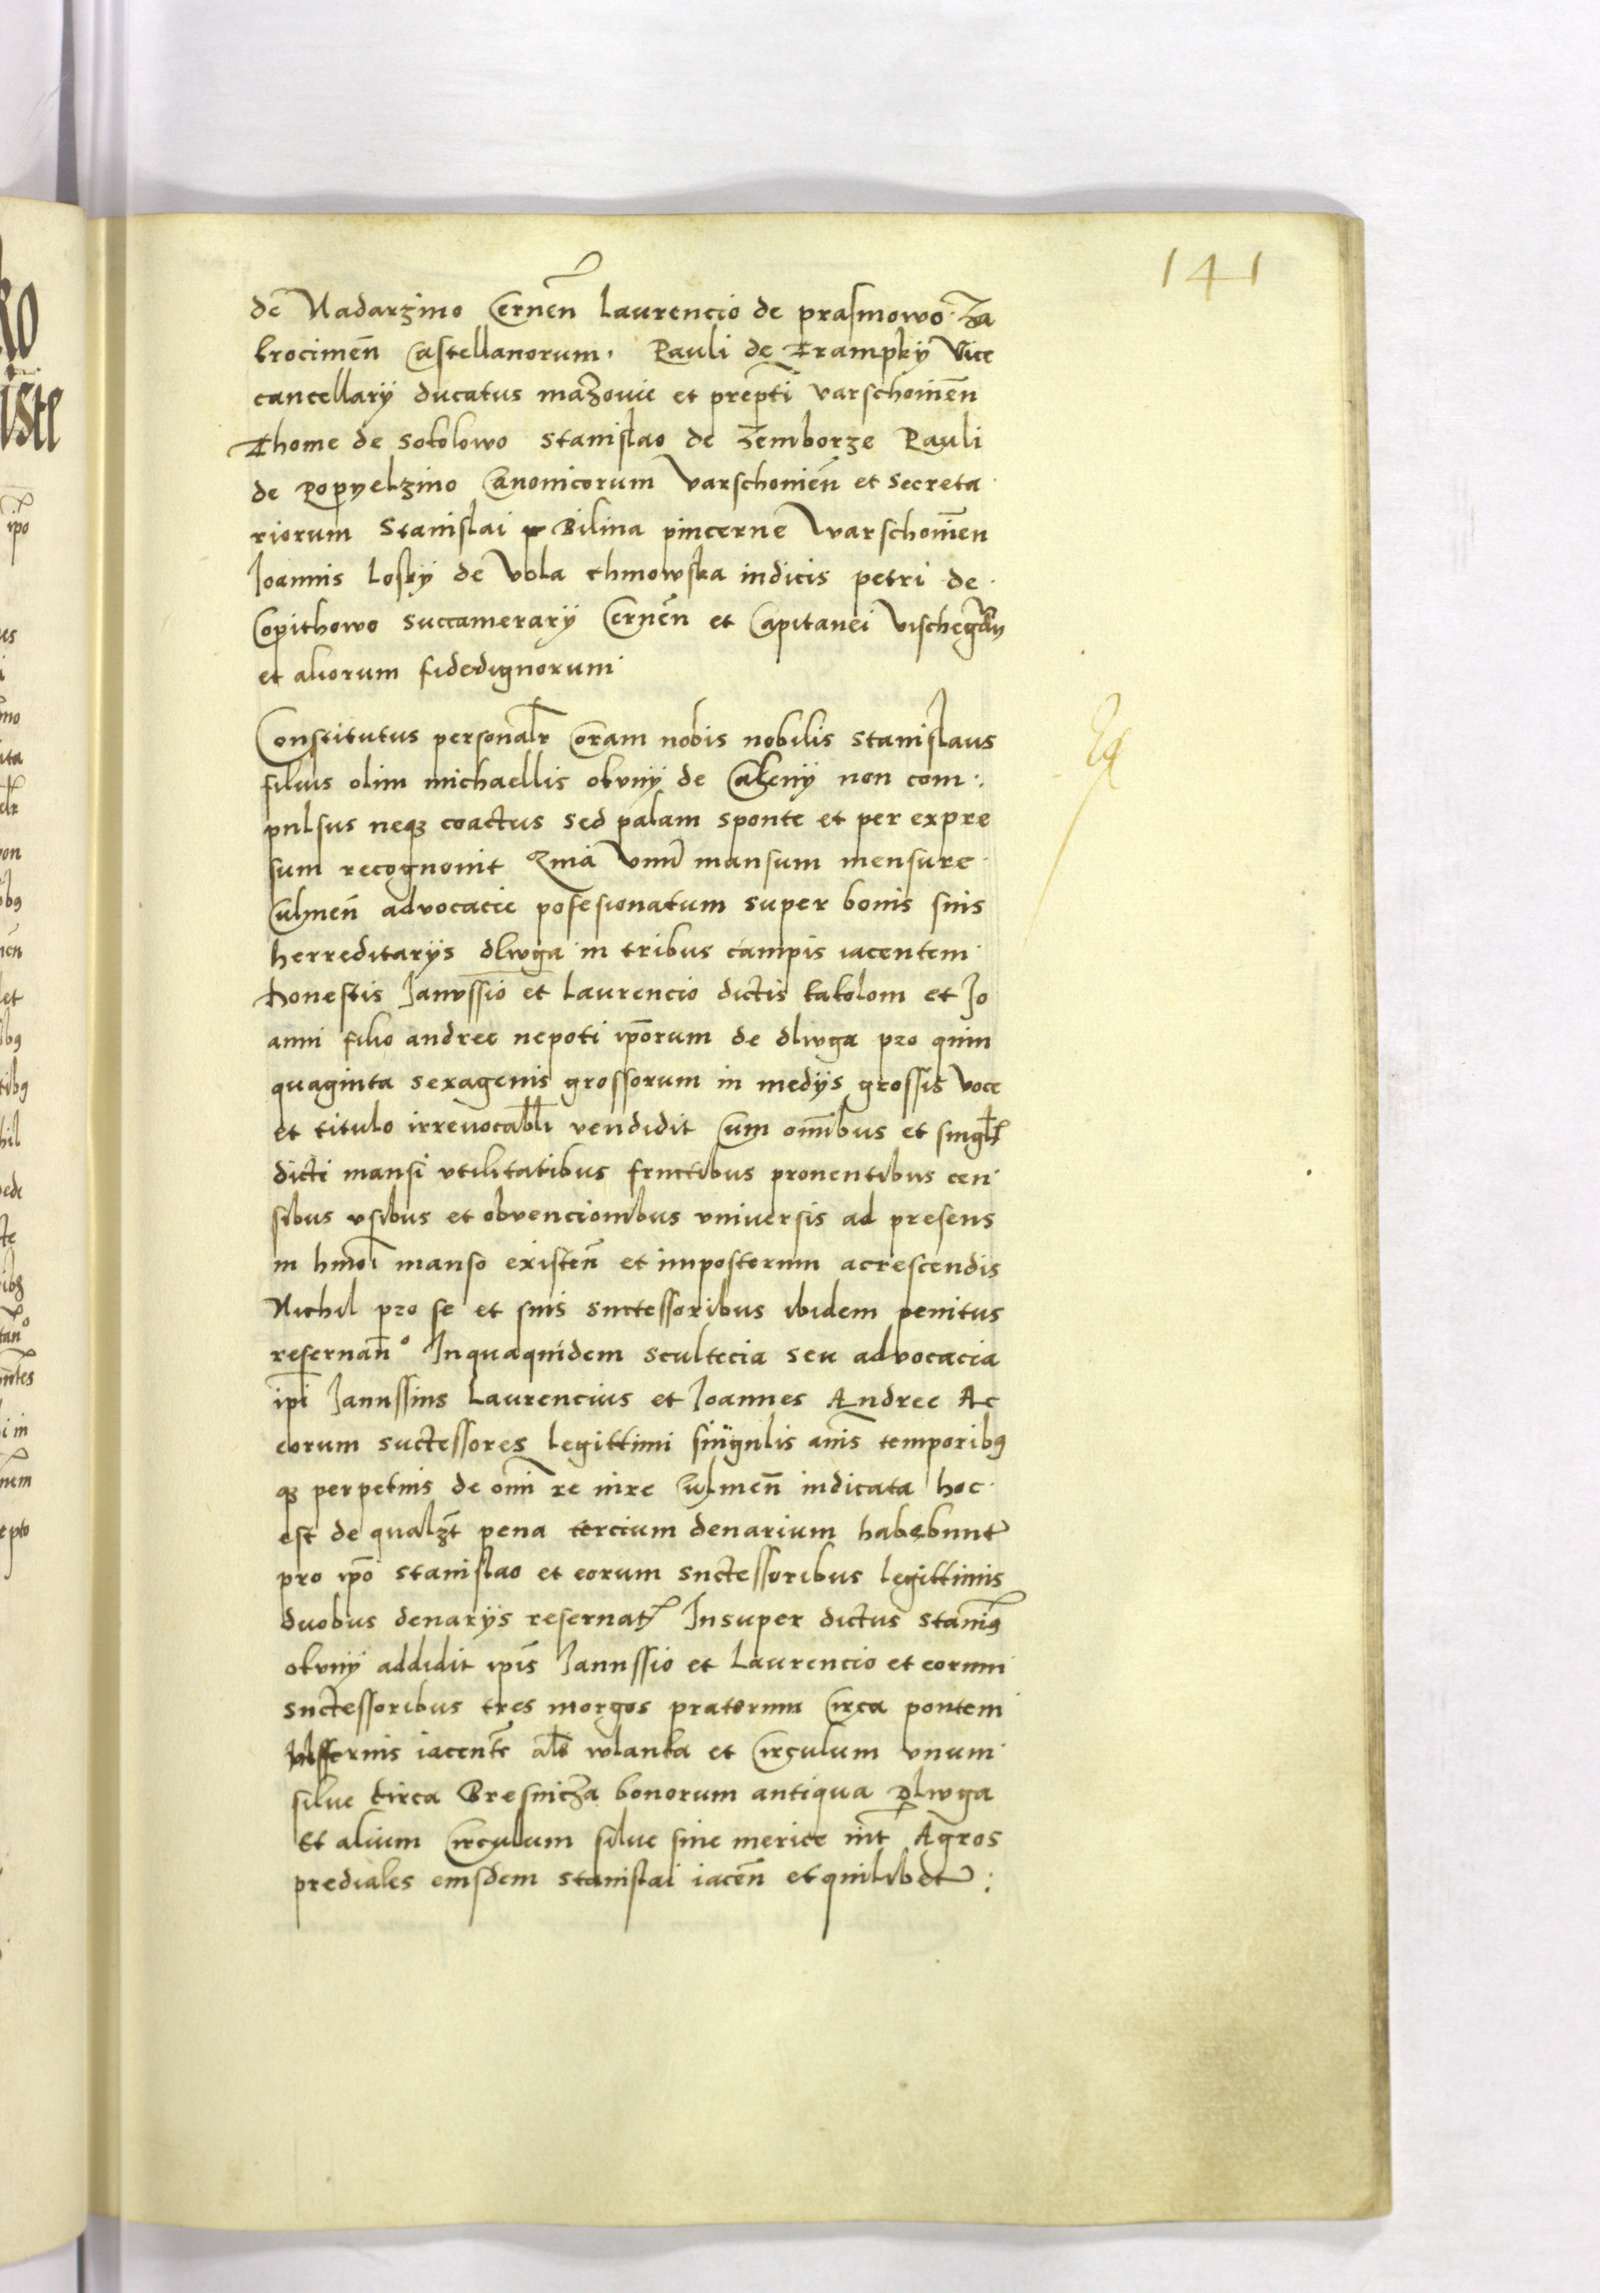 141
de Nadarzino Cernen̄ Laurencio de prasmowo Za
krocimen̄ Castellanorum. Pauli de Trampky Vice
cancellarÿ ducatus mazouie et prep̄ti varschouien̄
Thome de Sokolowo Stanislao de Zemborze Pauli
de Popyelzino Canonicorum Varschonien̄ et secreta
riorum Stanislai Bilina pincerne Warschouien̄
Joannis Losky de Vola chmowska iudicis petri de
Copithowo succamerarÿ Cernen̄ et Capitanei
et aliorum fidedignorum
Constitutus personalr̄ Coram nobis nobilis Stanislaus
filius olim michaellis okunÿ de non com
pulsus neqʒ coactus sed palam sponte et per expre
sum recognouit Quia vnū mansum mensure
Culmen̄ advocacie posesionatum super bonis suis
herreditarÿs dlwga in tribus campis iacentem
honestis Janvssio et Laurencio dictis kakolom et Jo
anni filio andree nepoti ip̄orum de dlwga pro quin
quaginta sexagenis grossorum in medÿs grossis voce
et titulo irreuocabl̄i vendidit Cum om̄ibus et singl̄
dicti mansi vtilitatibus fructibus prouentibus cen
sibus vsibus et obvencionibus vniuersis ad presens
in hmōi manso existen̄ et impostorum acrescendis
Nichil pro se et suis suctessoribus ibidem penitus
reseruan̄º Inquaquidem scultecia seu advocacia
ip̄i Janussius Laurencius et Joannes Andree Ac
eorum suctessores legittimi singulis an̄is temporibꝯ
qʒ perpetuis de om̄i re iure Culmen̄ iudicata hoc
est de qualʒt pena tercium denarium habebunt
pro ip̄o Stanislao et eorum suctessoribus legittimis
duobus denarÿs reseruat Insuper dictus Stanisꝯ
okunÿ addidit ip̄is Janussio et Laurencio et eorum
suctessoribus tres morgos pratorum Circa pontem
iacent̄e al̄s wlanka et Circulum vnum
silue Circa Bresnicza bonorum antiqua Dlwga
Et alium Circulum silue siue merice int̄ Agros
prediales eiusdem Stanislai iacen̄ et quilibet